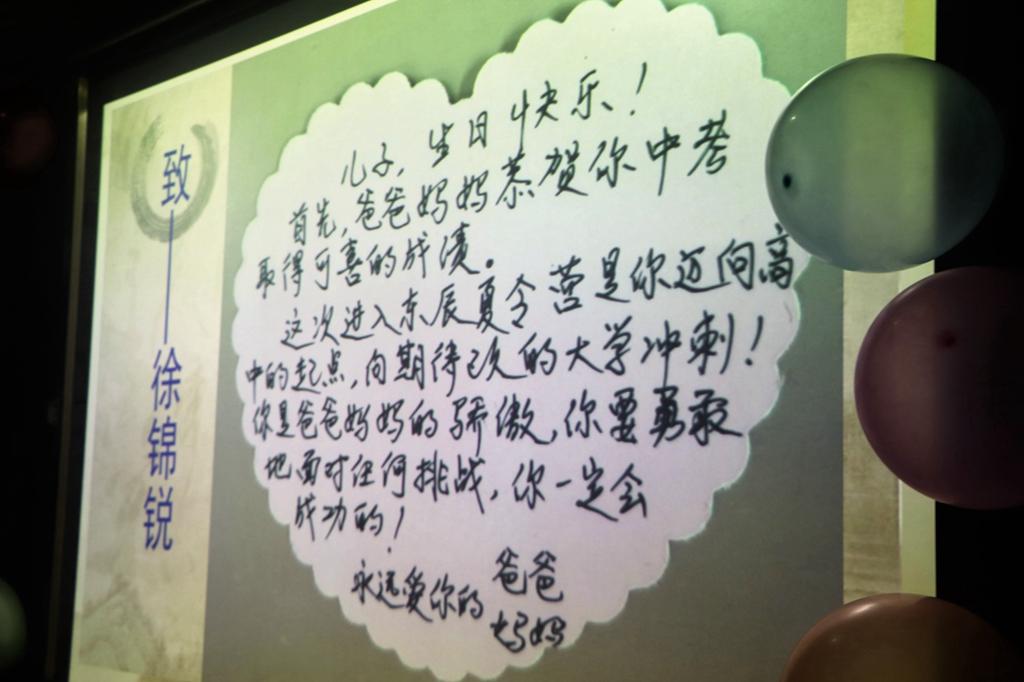 致——徐锦锐
儿子，生日快乐！
首先，爸爸妈妈恭贺你中考
取得可喜的成绩。
这次进入东辰夏令营是你迈向高
中的起点，向期待已久的大学冲刺！
你是爸爸妈妈的骄傲，你要勇敢
地面对任何挑战，你一定会
成功的！
永远爱你的 爸爸
妈妈